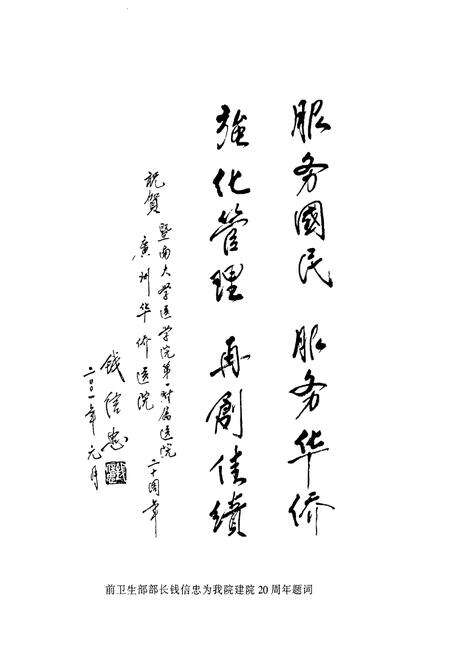 服务國民 服务华侨
強化管理 再創佳績
祝賀
暨南大学医学院第一附属医院 二十周年
廣州华侨医院
钱信忠
二〇〇一年元月
前卫生部部长钱信忠为我院建院 20 周年题词